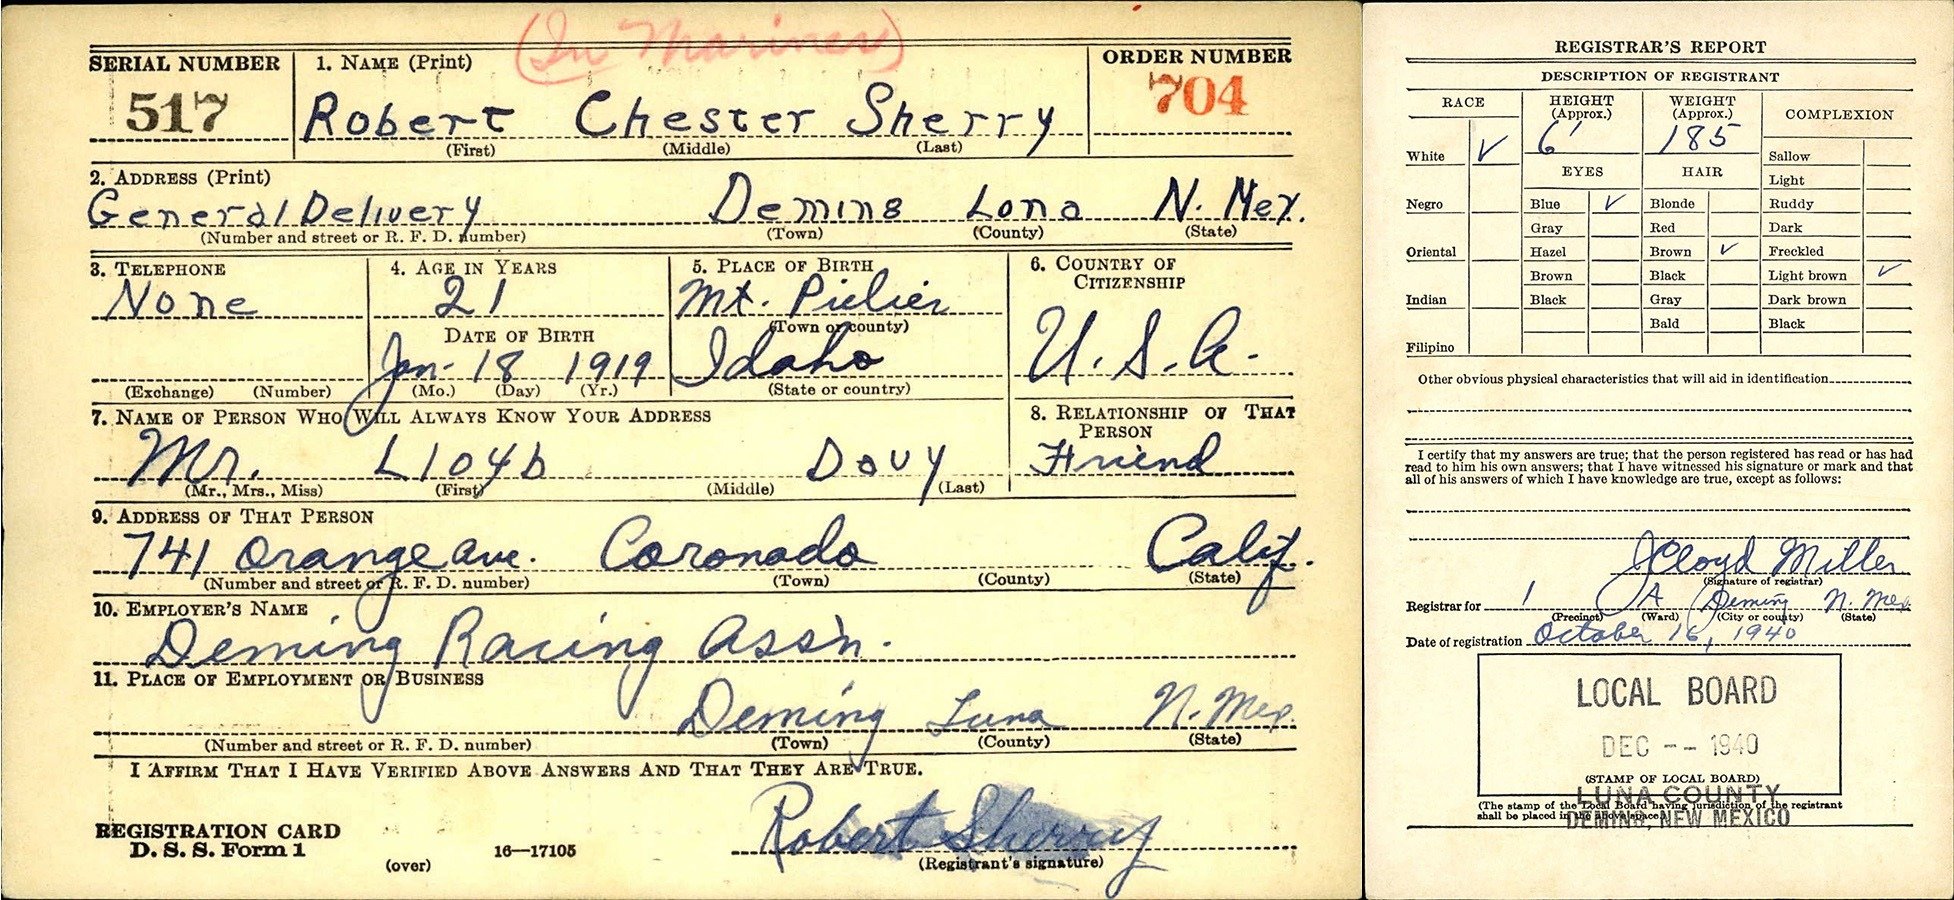 (In Marines)
SERIAL NUMBER 1. NAME (Print) ORDER NUMBER
517 Robert Chester Sherry 704
(First) (Middle) (Last)
2. ADDRESS (Print)
General Delivery Deming Lona N. Mex.
(Number and street or R. F. D. number) (Town) (County) (State)
3. TELEPHONE 4. AGE IN YEARS 5. PLACE OF BIRTH 6. COUNTRY OF
CITIZENSHIP
None 21 Mt. Pielier
(Town or county)
DATE OF BIRTH
Jan. 18 1919 Idaho U. S. A.
(Exchange) (Number) (Mo.) (Day) (Yr.) (State or country)
7. NAME OF PERSON WHO WILL ALWAYS KNOW YOUR ADDRESS 8. RELATIONSHIP OF THAT
PERSON
Mr. Lloyd Davy Friend
(Mr., Mrs., Miss) (First) (Middle) (Last)
9. ADDRESS OF THAT PERSON
741 Orange Ave. Coronado Calif.
(Number and street or R. F. D. number) (Town) (County) (State)
10. EMPLOYER'S NAME
Deming Racing Ass'n.
11. PLACE OF EMPLOYMENT OR BUSINESS
Deming Luna N. Mex.
(Number and street or R. F. D. number) (Town) (County) (State)
I AFFIRM THAT I HAVE VERIFIED ABOVE ANSWERS AND THAT THEY ARE TRUE.
Robert Sherry
REGISTRATION CARD
D. S. S. Form 1
(over) 16—17105 (Registrant's signature)
REGISTRAR'S REPORT
DESCRIPTION OF REGISTRANT
RACE HEIGHT (Approx.) WEIGHT (Approx.) COMPLEXION
White ✓ 6' 185 Sallow
EYES HAIR Light
Negro Blue ✓ Blonde Ruddy
Gray Red Dark
Oriental Hazel Brown ✓ Freckled
Brown Black Light brown ✓
Indian Black Gray Dark brown
Bald Black
Filipino
Other obvious physical characteristics that will aid in identification
I certify that my answers are true; that the person registered has read or has had
read to him his own answers; that I have witnessed his signature or mark and that
all of his answers of which I have knowledge are true, except as follows:
J Cloyd Miller
(Signature of registrar)
Registrar for 1 A Deming N. Mex.
(Precinct) (Ward) (City or county) (State)
Date of registration October 16, 1940
LOCAL BOARD
DEC -- 1940
(STAMP OF LOCAL BOARD)
LUNA COUNTY
(The stamp of the Local Board having jurisdiction of the registrant
shall be placed in the above space.)
DEMING, NEW MEXICO